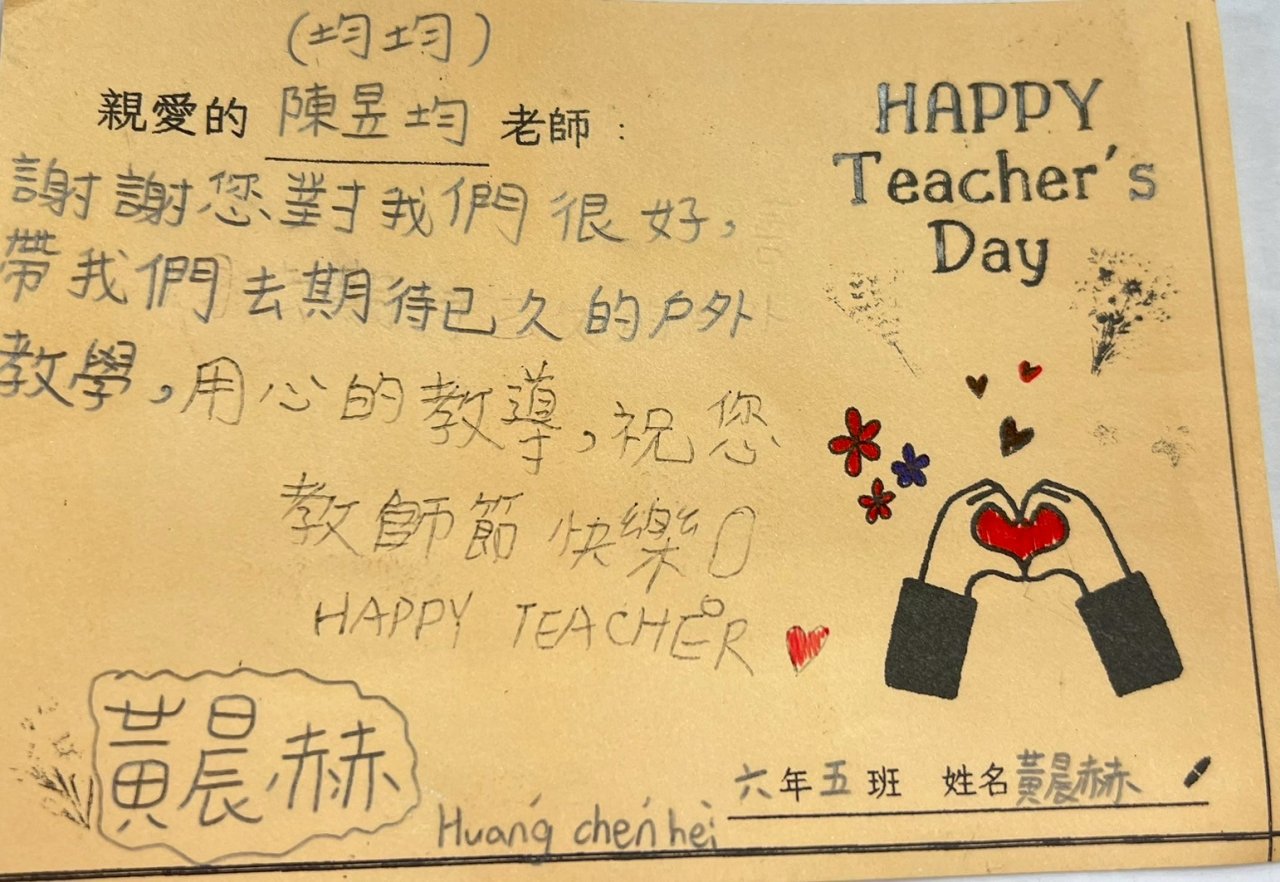 (均均)
親愛的 陳昱均 老師：
謝謝您對我們很好，
帶我們去期待已久的戶外
教學，用心的教導，祝您
教師節快樂
HAPPY TEACHER
HAPPY
Teacher's
Day
黃晨赫
Huang chen hei
六年五班 姓名黃晨赫